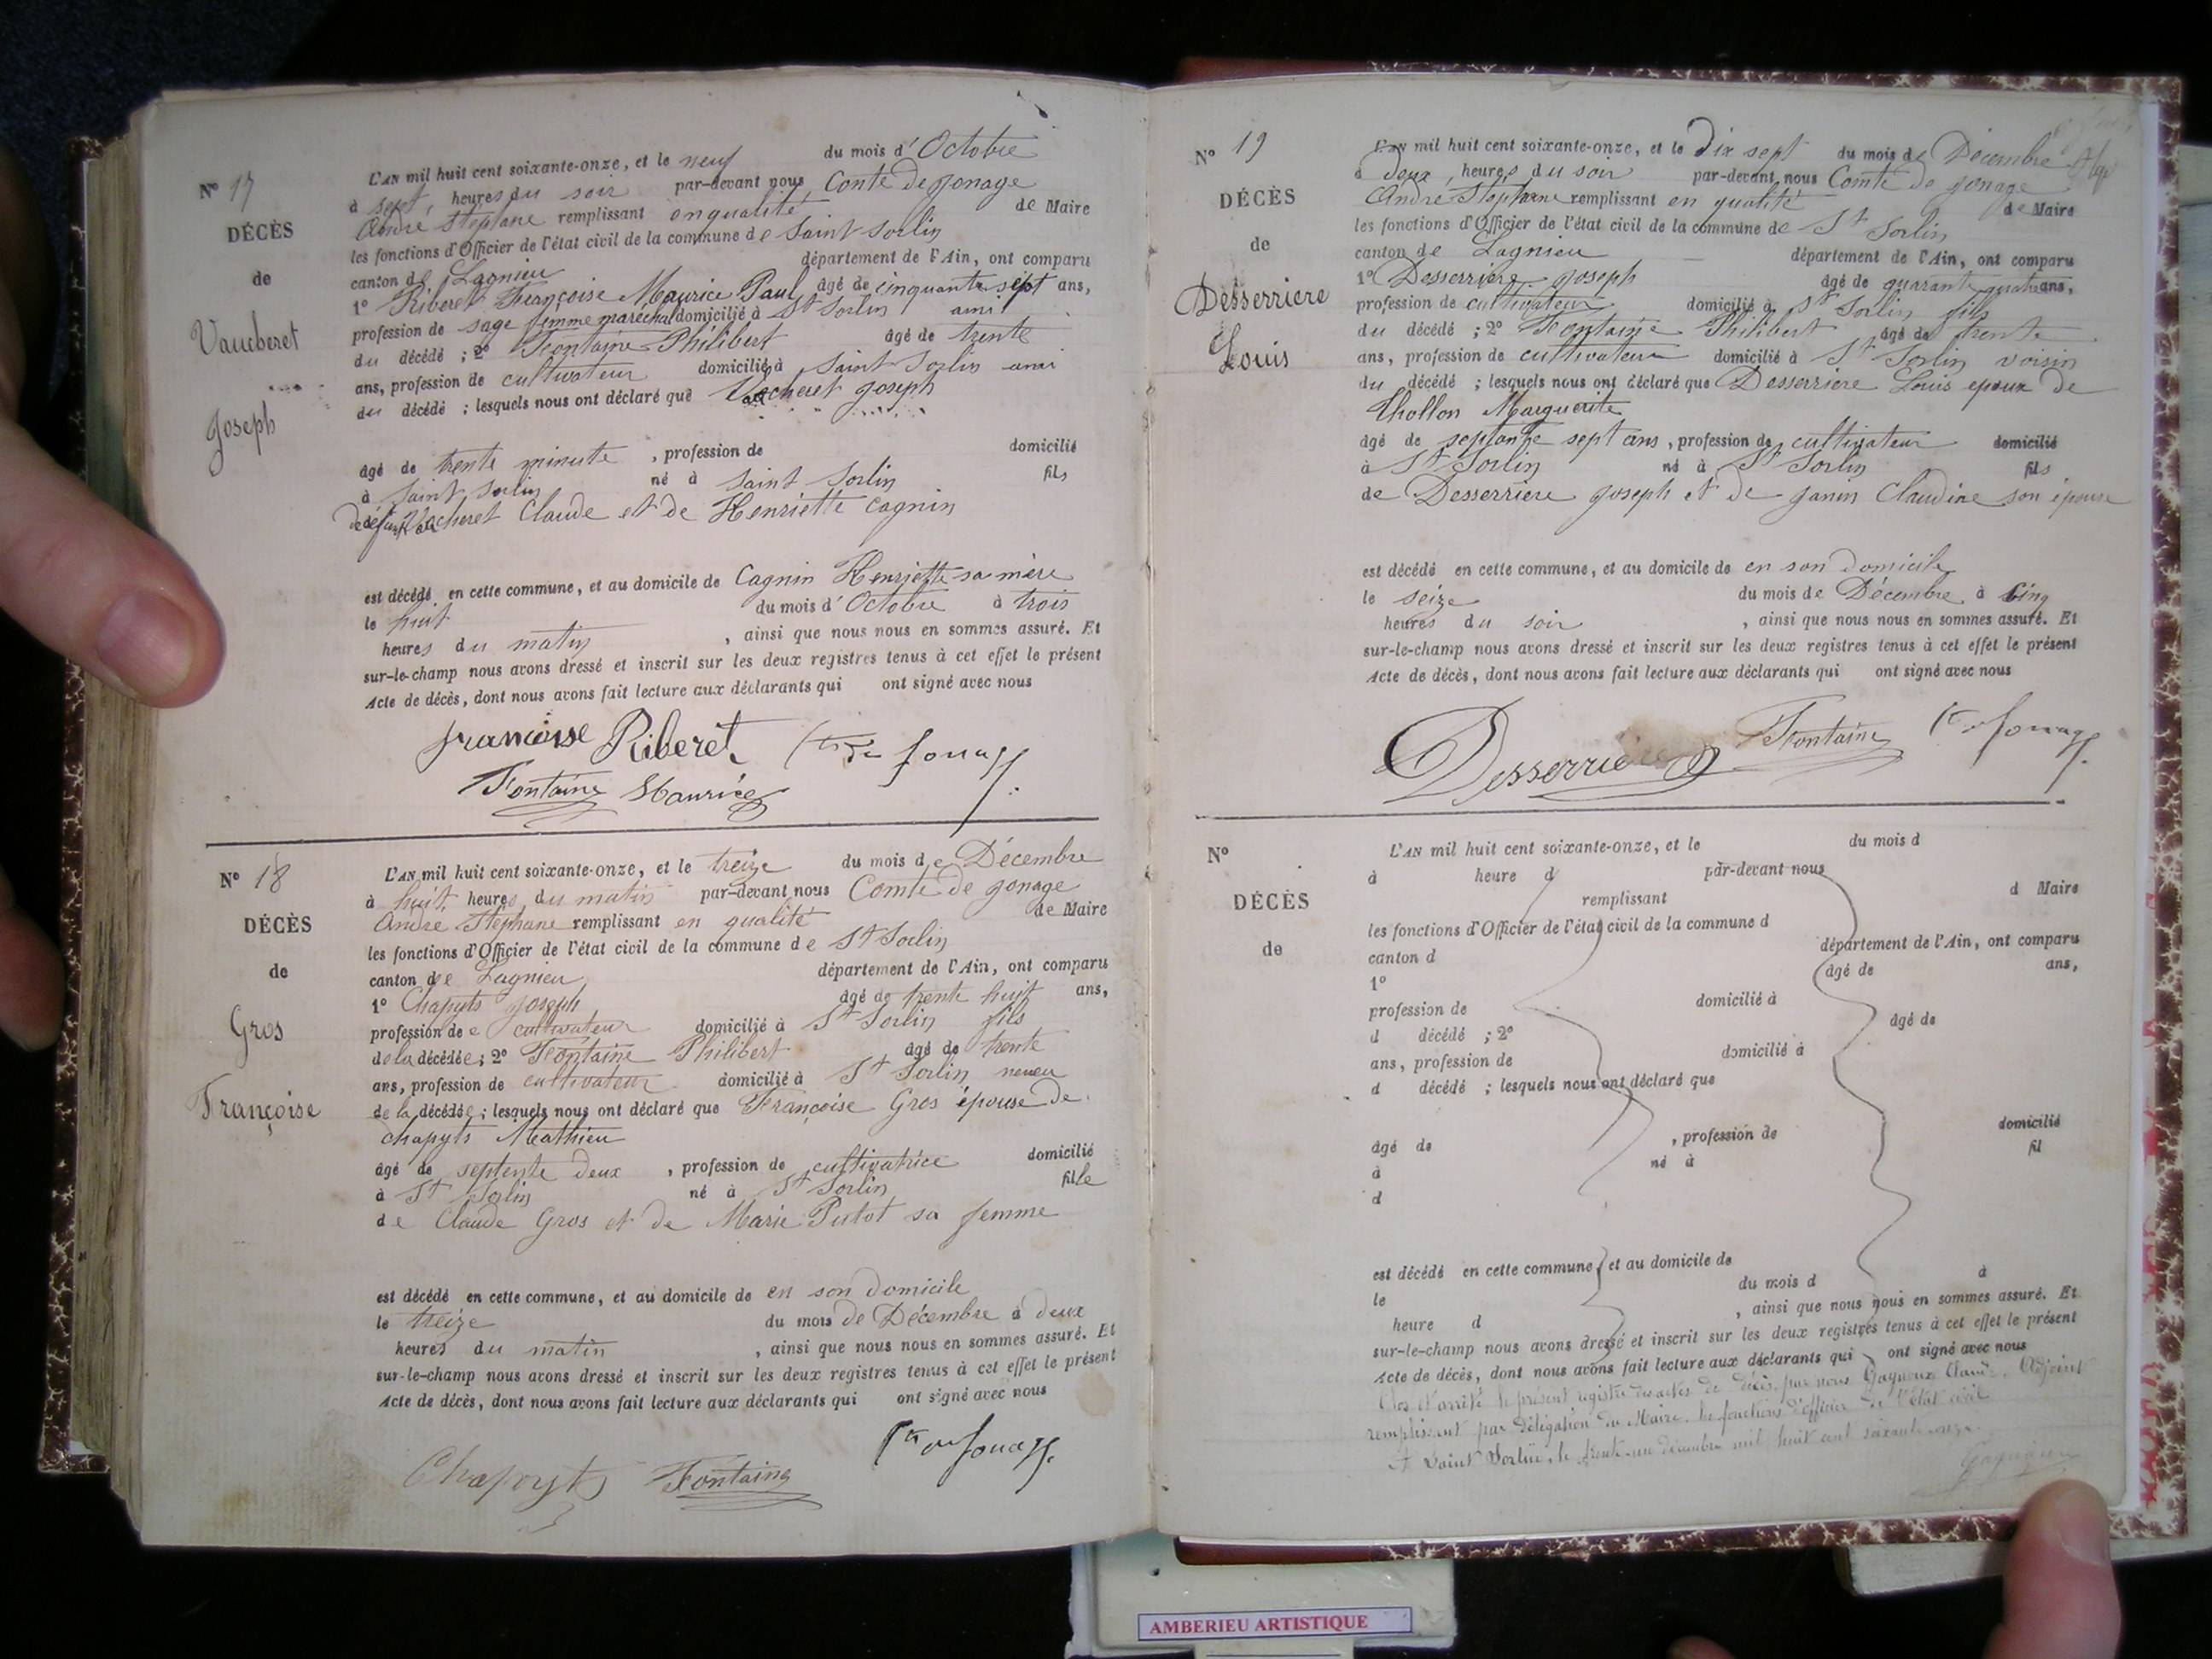 N° 17
DÉCÈS
de
Vaucheret
Joseph
L'AN mil huit cent soixante-onze, et le neuf du mois d'Octobre
à sept, heures du soir par-devant nous Comte de Jonage
André Stéphane remplissant en qualité de Maire
les fonctions d'Officier de l'état civil de la commune de Saint Sorlin
canton de Lagnieu département de l'Ain, ont comparu
1° Riberet Françoise Maurice Paul âgé de cinquante sept ans,
profession de sage femme maréchal domicilié à St Sorlin ami
du décédé ; 2° Fontaine Philibert âgé de trente
ans, profession de cultivateur domicilié à Saint Sorlin ami
du décédé ; lesquels nous ont déclaré que Vacheret Joseph
âgé de trente minute , profession de domicilié
à Saint Sorlin né à Saint Sorlin fils
de défunt Vacheret Claude et de Henriette Cagnin
est décédé en cette commune, et au domicile de Cagnin Henriette sa mère
le huit du mois d'Octobre à trois
heures du matin , ainsi que nous nous en sommes assuré. Et
sur-le-champ nous avons dressé et inscrit sur les deux registres tenus à cet effet le présent
Acte de décès, dont nous avons fait lecture aux déclarants qui ont signé avec nous
francoise Riberet Cte de Jonage
Fontaine Maurice
N° 18
DÉCÈS
de
Gros
Françoise
L'AN mil huit cent soixante-onze, et le treize du mois de Décembre
à huit heures du matin par-devant nous Comte de Jonage
André Stéphane remplissant en qualité de Maire
les fonctions d'Officier de l'état civil de la commune de St Sorlin
canton de Lagnieu département de l'Ain, ont comparu
1° Chapyts Joseph âgé de trente huit ans,
profession de cultivateur domicilié à St Sorlin fils
de la décédée ; 2° Fontaine Philibert âgé de trente
ans, profession de cultivateur domicilié à St Sorlin neveu
de la décédée ; lesquels nous ont déclaré que Françoise Gros épouse de
chapyts Mathieu
âgé de septente deux , profession de cultivatrice domicilié
à St Sorlin né à St Sorlin fille
de Claude Gros et de Marie Putot sa femme
est décédé en cette commune, et au domicile de en son domicile
le treize du mois de Décembre à deux
heures du matin , ainsi que nous nous en sommes assuré. Et
sur-le-champ nous avons dressé et inscrit sur les deux registres tenus à cet effet le présent
Acte de décès, dont nous avons fait lecture aux déclarants qui ont signé avec nous
Cte de Jonage
Chapoyts Fontaine
N° 19
DÉCÈS
de
Desserriere
Louis
L'AN mil huit cent soixante-onze, et le Dix sept du mois de Décembre
à deux, heures du soir par-devant nous Comte de Jonage
André Stéphane remplissant en qualité de Maire
les fonctions d'Officier de l'état civil de la commune de St Sorlin
canton de Lagnieu département de l'Ain, ont comparu
1° Desserriere Joseph âgé de quarante quatre ans,
profession de cultivateur domicilié à St Sorlin fils
du décédé ; 2° Fontaine Philibert âgé de trente
ans, profession de cultivateur domicilié à St Sorlin voisin
du décédé ; lesquels nous ont déclaré que Desserriere Louis epoux de
Chollon Marguerite
âgé de septante sept ans , profession de cultivateur domicilié
à St Sorlin né à St Sorlin fils
de Desserriere Joseph et de Janin Claudine son épouse
est décédé en cette commune, et au domicile de en son domicile
le seize du mois de Décembre à Cinq
heures du soir , ainsi que nous nous en sommes assuré. Et
sur-le-champ nous avons dressé et inscrit sur les deux registres tenus à cet effet le présent
Acte de décès, dont nous avons fait lecture aux déclarants qui ont signé avec nous
Desserriere Fontaine Cte de Jonage
N°
DÉCÈS
de
L'AN mil huit cent soixante-onze, et le du mois d
à heure d par-devant nous
remplissant d Maire
les fonctions d'Officier de l'état civil de la commune d
canton d département de l'Ain, ont comparu
1° âgé de ans,
profession de domicilié à
d décédé ; 2° âgé de
ans, profession de domicilié à
d décédé ; lesquels nous ont déclaré que
âgé de , profession de domicilié
à né à fil
d
est décédé en cette commune, et au domicile de
le du mois d à
heure d , ainsi que nous nous en sommes assuré. Et
sur-le-champ nous avons dressé et inscrit sur les deux registres tenus à cet effet le présent
Acte de décès, dont nous avons fait lecture aux déclarants qui ont signé avec nous
Clos et arrêté le présent registre des actes de décès, par nous Claude, Adjoint
remplissant par délégation du Maire les fonctions d'officier de l'état civil
A Saint Sorlin, le trente-un décembre mil huit cent soixante onze.
AMBERIEU ARTISTIQUE